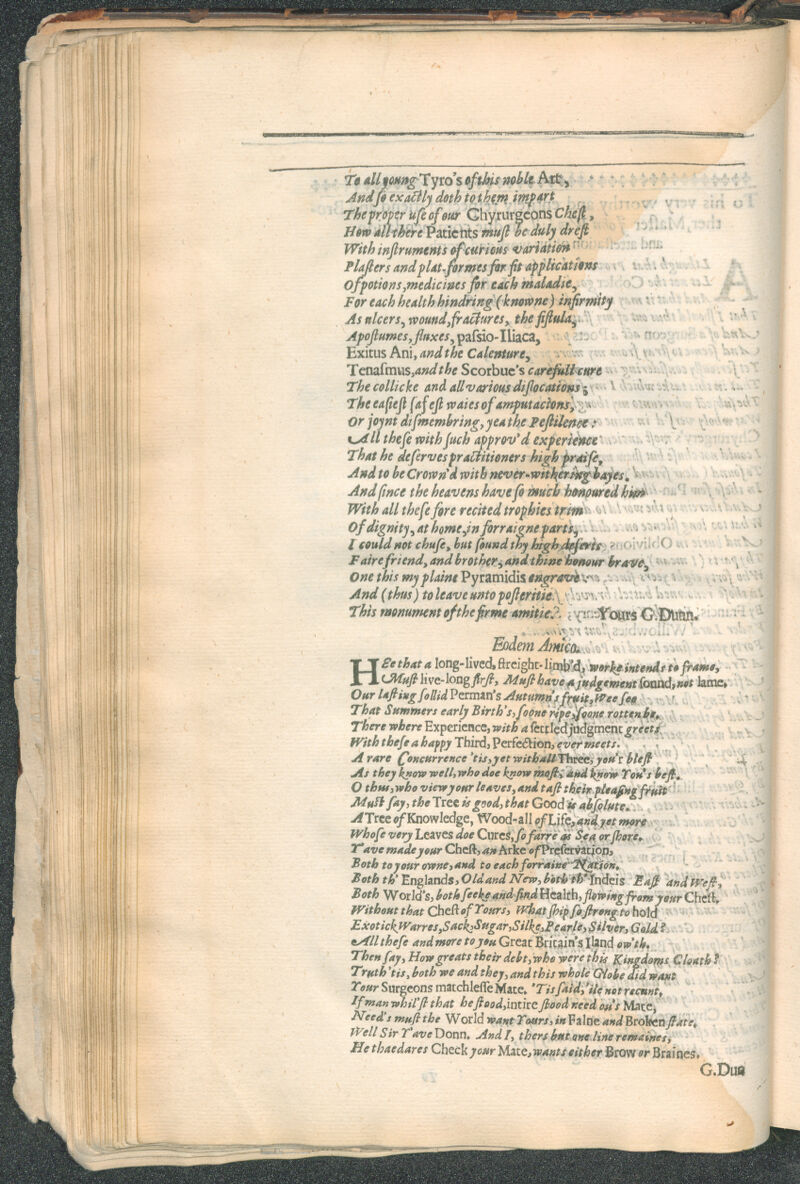 To all young Tyro's of this noble Art,
And ſo exactly doth to them impart
The proper uſe of our Chyrurgeons Cheſt,
How all there Patients muſt be duly dreſt
With inſtruments of curious variation
Plaſters and plat-formes for fit applications
Of potions, medicines for each maladie,
For each health hindring (knowne) infirmity
As ulcers, wound, fractures, the fiſtula,
Apoſtumes, fluxes, paſsio-Iliaca,
Exitus Ani, and the Calenture,
Tenaſmus, and the Scorbue's carefull cure
The collicke and all various diſlocations;
The eaſieſt ſafeſt waies of amputacions,
Or joynt diſmembring, yea the Peſtilence:
All theſe with ſuch approv'd experience
That he deſerves practitioners high praiſe,
And to be Crown'd with never-withering bayes.
And ſince the heavens have ſo much honoured him
With all theſe fore recited trophies trim
Of dignity, at home, in forraigne parts,
I could not chuſe, but ſound thy high deſerts
Faire friend, and brother, and thine honour brave,
One this my plaine Pyramidis engrave
And (thus) to leave unto poſteritie
This monument of the firme amitie. Yours G. Dunn.
Eodem Amico.
HEe that a long-lived, ſtreight-limb'd, worke intends to frame,
Muſt live-long firſt, Muſt have a judgement ſound, not lame,
Our laſting ſollid Perman's Autumn's fruit, Wee ſee
That Summers early Birth's, ſoone ripe, ſoone rotten be.
There where Experience, with a ſettled judgment greets
With theſe a happy Third, Perfection, ever meets.
A rare Concurrence 'tis, yet withall Three, you'r bleſt
As they know well, who doe know moſt, and know You's beſt.
O thus, who view your leaves, and taſt their pleaſing fruit
Muſt ſay, the Tree is good, that Good is abſolute.
A Tree of Knowledge, Wood-all of Life, and yet more
Whoſe very Leaves doe Cures, ſo farre as Sea or ſhore.
Y'ave made your Cheſt, an Arke of Preſervation,
Both to your owne, and to each forraine Nation.
Both th' Englands, Old and New, both th' Indeis Eaſt and Weſt,
Both World's, both ſeeke and find Health, flowing from your Cheſt.
Without that Cheſt of Yours, What ſhip ſo ſtrong to hold
Exotick Warres, Sack, Sugar, Silke, Pearle, Silver, Gold?
All theſe and more to you Great Britain's Iland ow'th.
Then ſay, How greats their debt, who were this Kingdoms Cloath?
Truth 'tis, both we and they, and this whole Globe did want
Your Surgeons matchleſſe Mate. 'Tis ſaid, 'ile not recant,
If man whil'ſt that he ſtood, intire ſtood need on's Mate,
Need's muſt the World want Yours, in Falne and Broken ſtate.
Well Sir Y'ave Donn. And I, there but one line remaines,
He thaedares Check your Mate, wants either Brow or Braines.
G. Dun